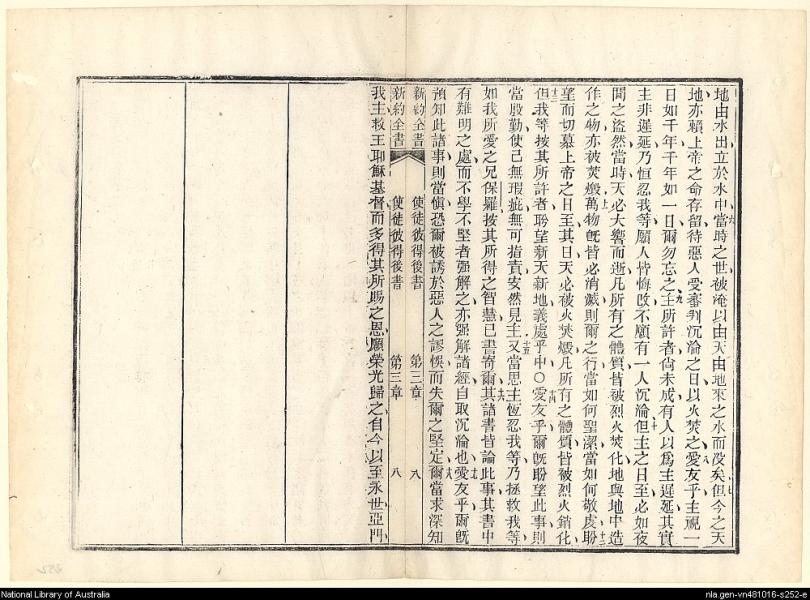 地由水出立於水中當時之世被淹以由天由地來之水而沒矣但今之天
地亦賴上帝之命存留待惡人受審判沉淪之日以火焚之愛友乎主視一
日如千年千年如一日爾勿忘之主所許者尙未成有人以爲主遲延其實
主非遲延乃恒忍我等願人皆悔改不願有一人沉淪但主之日至必如夜
間之盜然當時天必大響而逝凡所有之體質皆被烈火焚化地與地中造
作之物亦被焚燬萬物旣皆必消滅則爾之行當如何聖潔當如何敬虔盼
望而切慕上帝之日至其日天必被火焚燬凡所有之體質皆被烈火銷化
但我等按其所許者盼望新天新地義處乎中○愛友乎爾旣盼望此事則
當殷勤使己無瑕疵無可指責安然見主又當思主恆忍我等乃拯救我等
如我所愛之兄保羅按其所得之智慧已書寄爾其諸書皆論此事其書中
有難明之處而不學不堅者强解之亦强解諸經自取沉淪也愛友乎爾旣
預知此諸事則當愼恐爾被誘於惡人之謬悞而失爾之堅定爾當求深知
新約全書 使徒彼得後書 第三章 八
新約全書 使徒彼得後書 第三章 八
我主救主耶穌基督而多得其所賜之恩願榮光歸之自今以至永世亞們
National Library of Australia
nla.gen-vn481016-s252-e